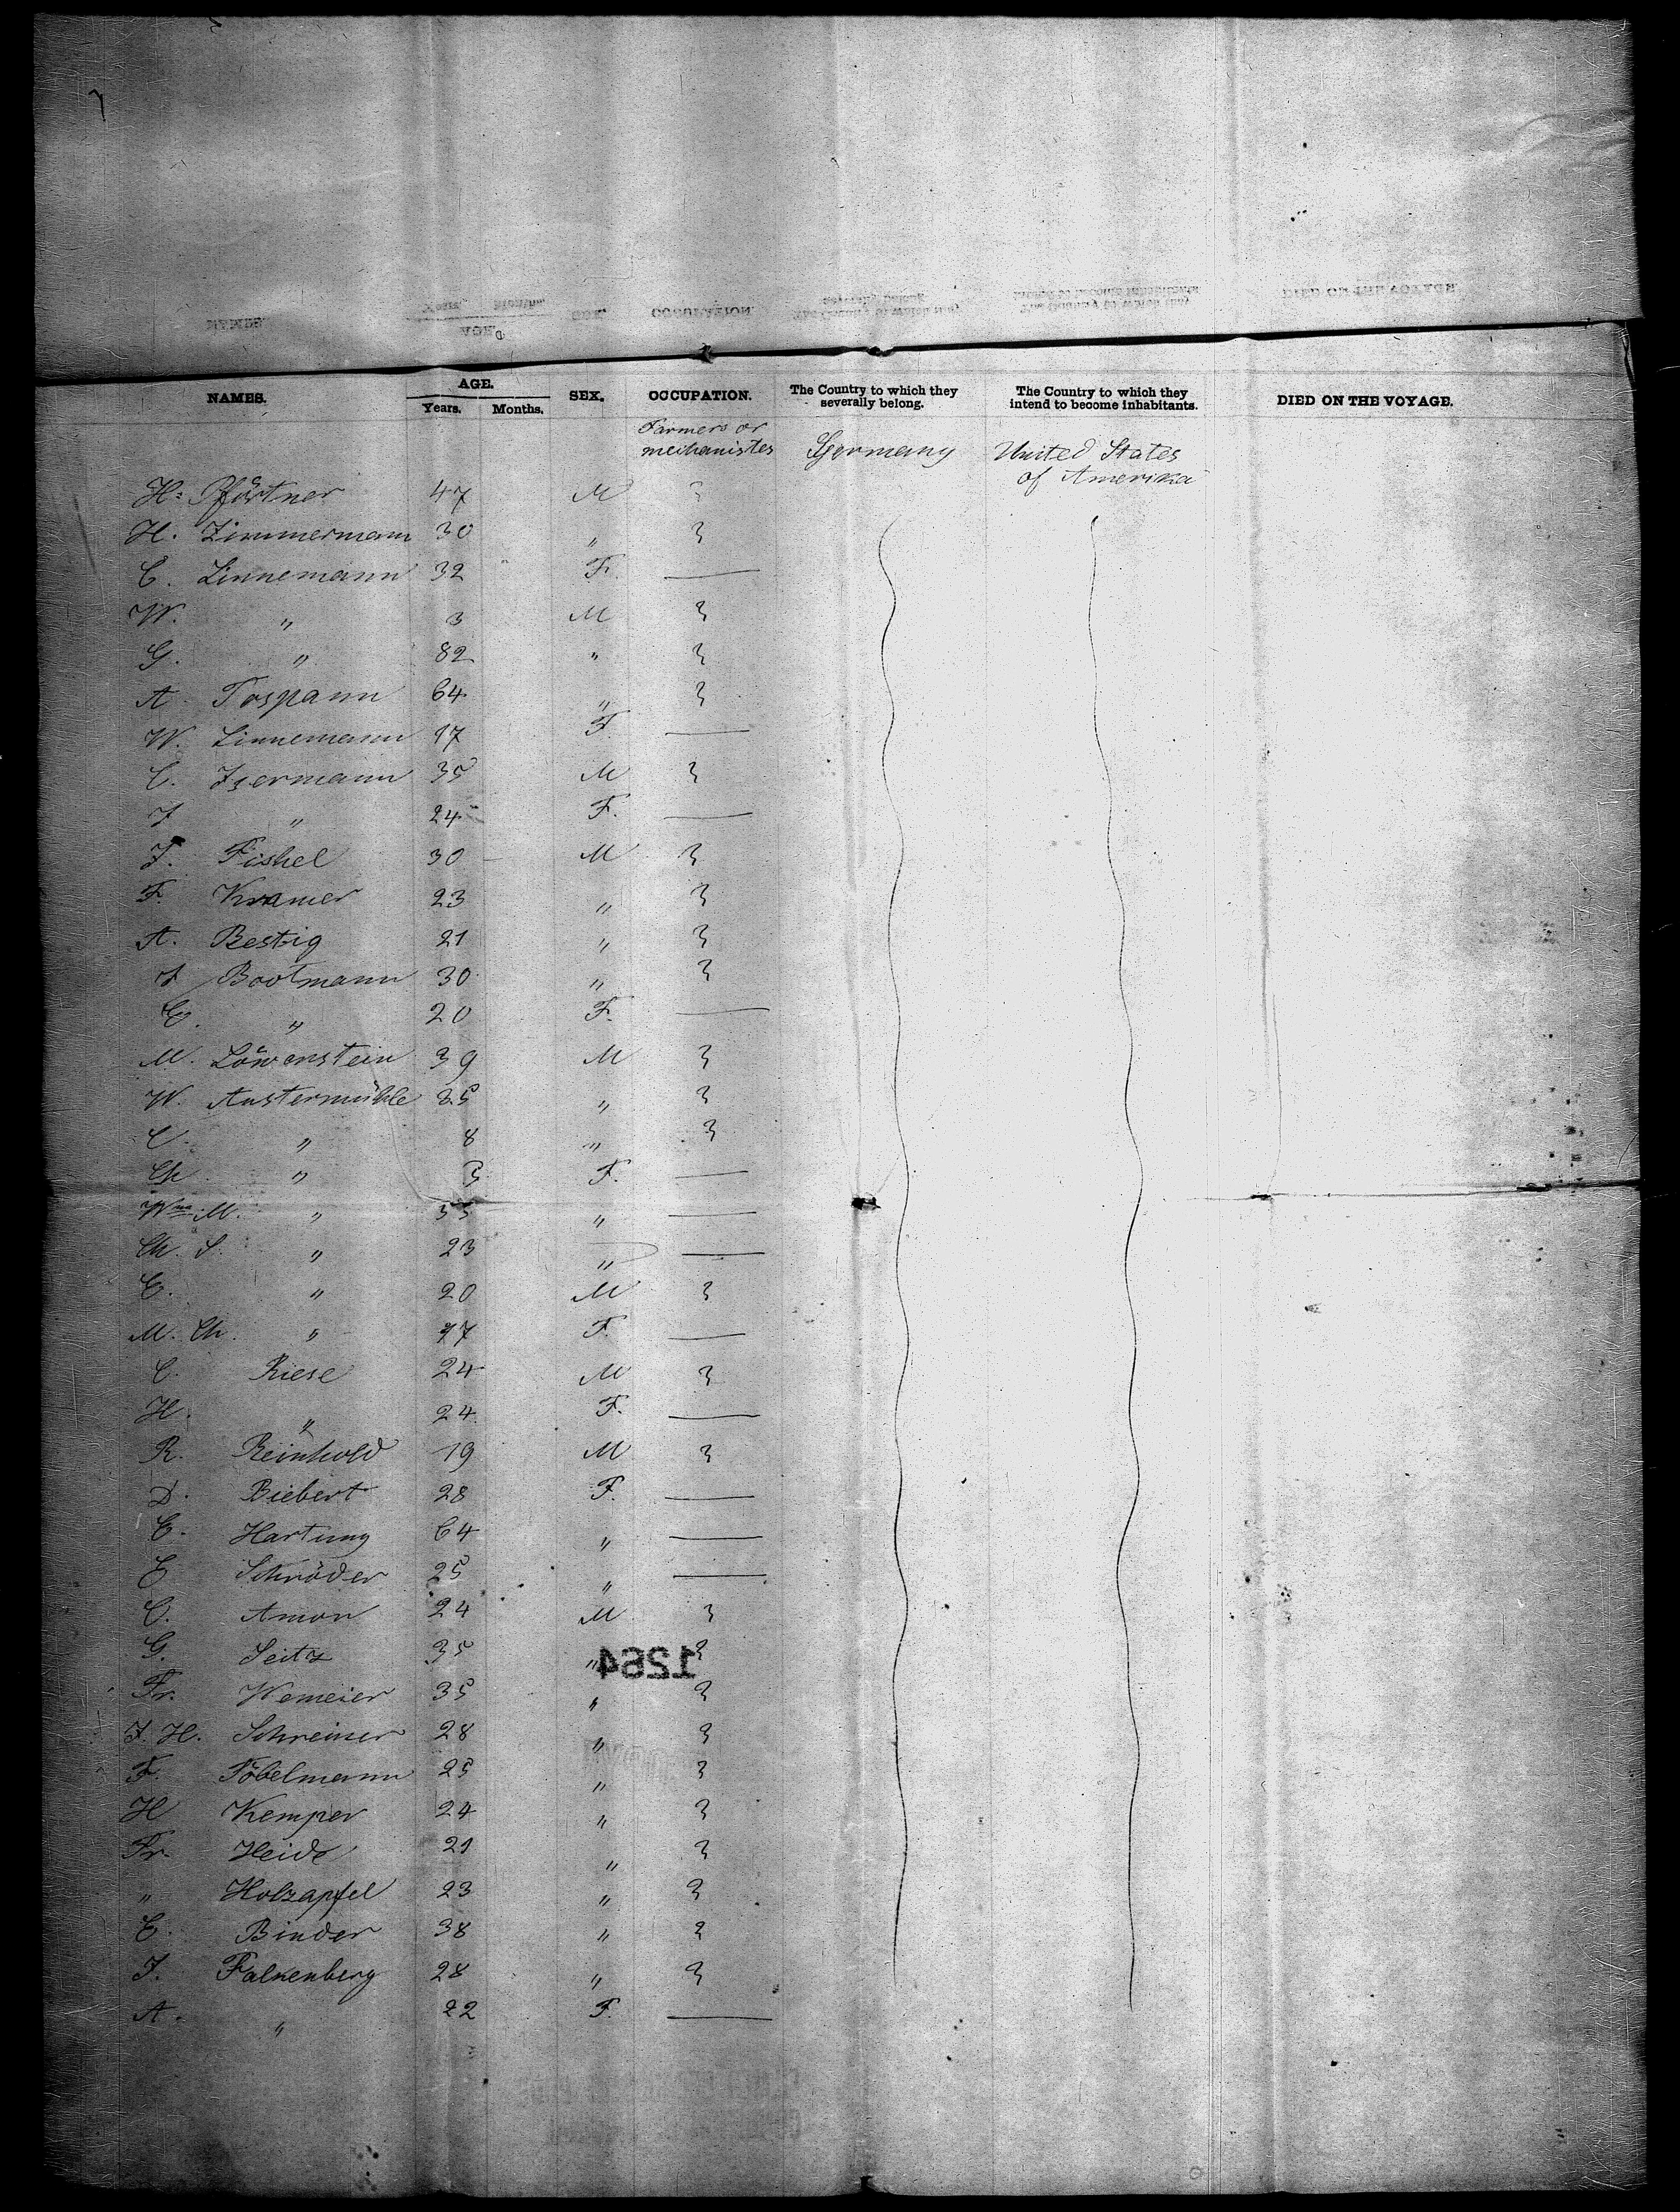 NAMES. AGE. SEX. OCCUPATION. The Country to which they severally belong. The Country to which they intend to become inhabitants. DIED ON THE VOYAGE.
Years. Months.
Farmers or
mechanistes Germany United States
of Amerika
H. Pförtner 47 M "
H. Zimmermann 30 " "
C. Linnemann 32 F. —
W. " 3 M "
G. " 82 " "
A. Tospann 64 " "
W. Linnemann 17 F —
C. Isermann 35 M "
J " 24 F. —
J. Fishel 30 M "
F. Kramer 23 " "
A. Bestig 21 " "
J Bootmann 30 " "
C. " 20 F. —
M. Löwenstein 39 M "
W. Austermühle 35 " "
C. " 8 " "
Ch. " 3 F. —
Wne M. " 55 " —
Ch. S. " 23 " —
C. " 20 M "
M. Ch. " 17 F. —
C. Riese 24 M "
H. " 24 F. —
R. Reinhold 19 M "
D. Biebert 28 F. —
C. Hartung 64 " —
E Schröder 25 " —
C. Amon 24 M "
G. Seitz 35 " "
1264
Fr. Wemeier 35 " "
J. H. Schreiner 28 " "
F. Töbelmann 25 " "
H Kemper 24 " "
Fr. Heide 21 " "
" Holzapfel 23 " "
C. Binder 38 " "
J. Falkenberg 28 " "
A. " 22 F. —